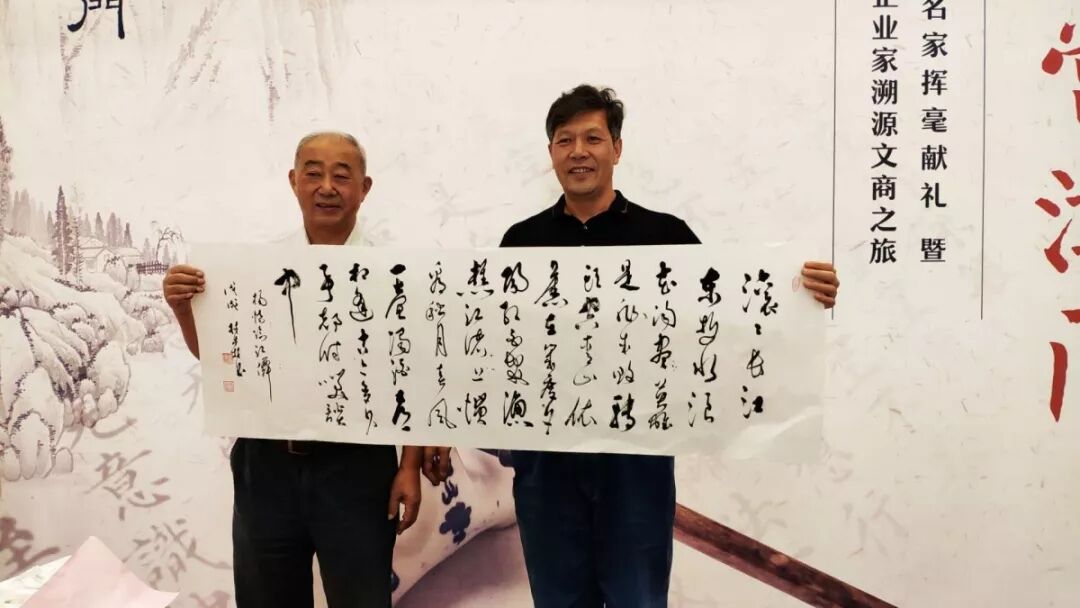 名家挥毫献礼 暨
企业家溯源文商之旅
滚〻长江
东逝水浪
花淘尽英雄
是非成败转
头空青山依
旧在几度夕
阳红白发渔
樵江渚上惯
看秋月春风
一壶浊酒喜
相逢古今多少
事都付笑谈
中
杨慎临江仙
戊戌
門
意識